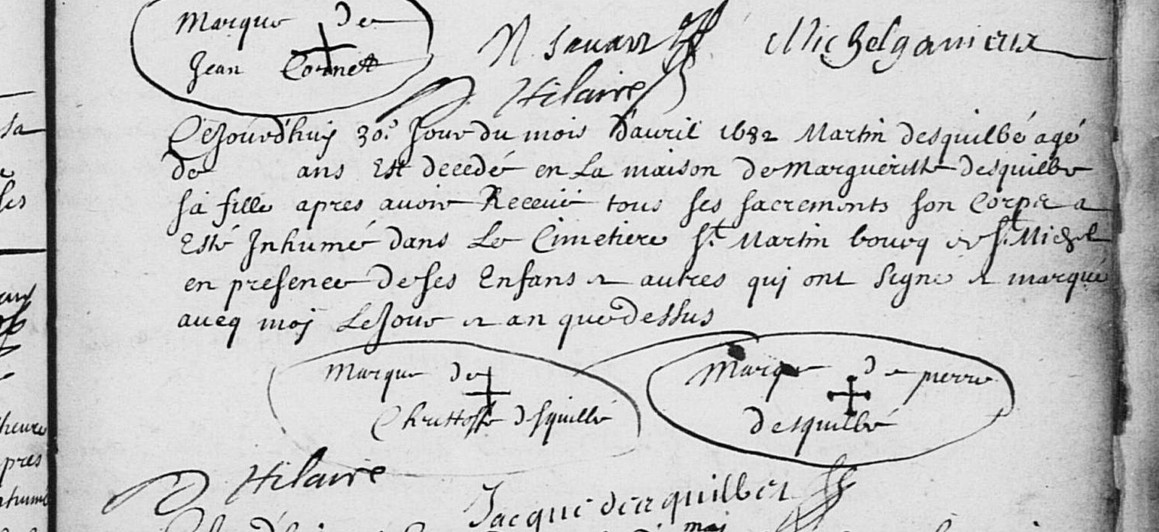 Marque de
Jean Cornet
N. Savary
Michel ganieux
D. Hilaire
Cejourd'huy 30.e Jour du mois d'avril 1682 Martin desquilbé agé
de ans Est decedé en La maison de Margueritte desquilbe
sa fille apres avoir Receüe tous ses sacrements son Corps a
Esté Inhumé dans Le Cimetiere St. Martin bourq de St. Michel
en presence de ses Enfans et autres qui ont signé et marqué
avecq moj Le Jour et an que dessus
Marque de
Christoffe desquilbé
Marque de pierre
desquilbé
D. Hilaire
Jacque descquilbet